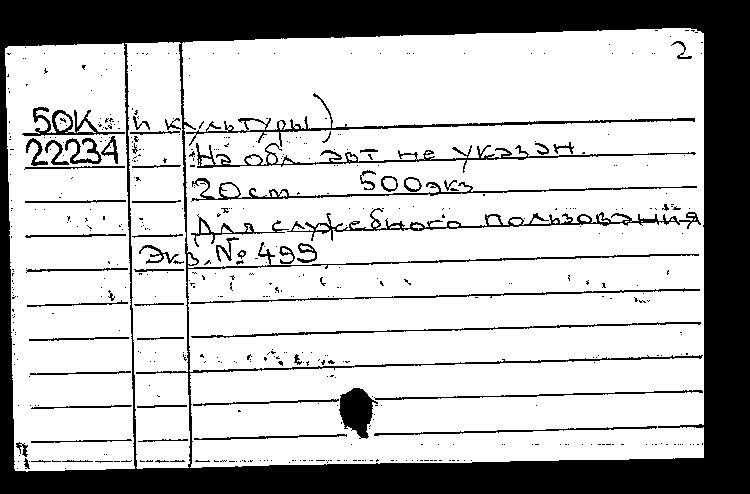 2
50К и культуры).
22234 На обл. авт. не указан.
20 cm. 500 экз
Для служебного пользования
Экз. № 499